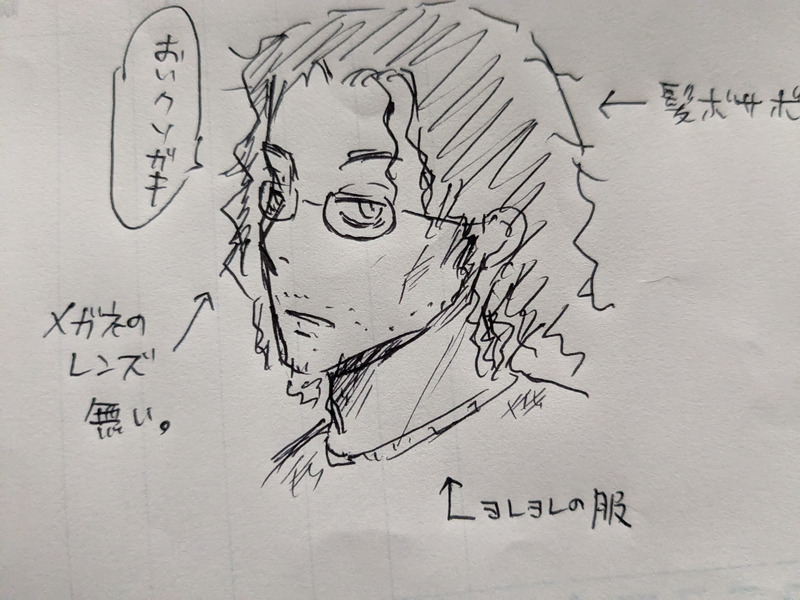 おいクソガキ
←髪ボサボ
メガネの
レンズ
無い。
ヨレヨレの服